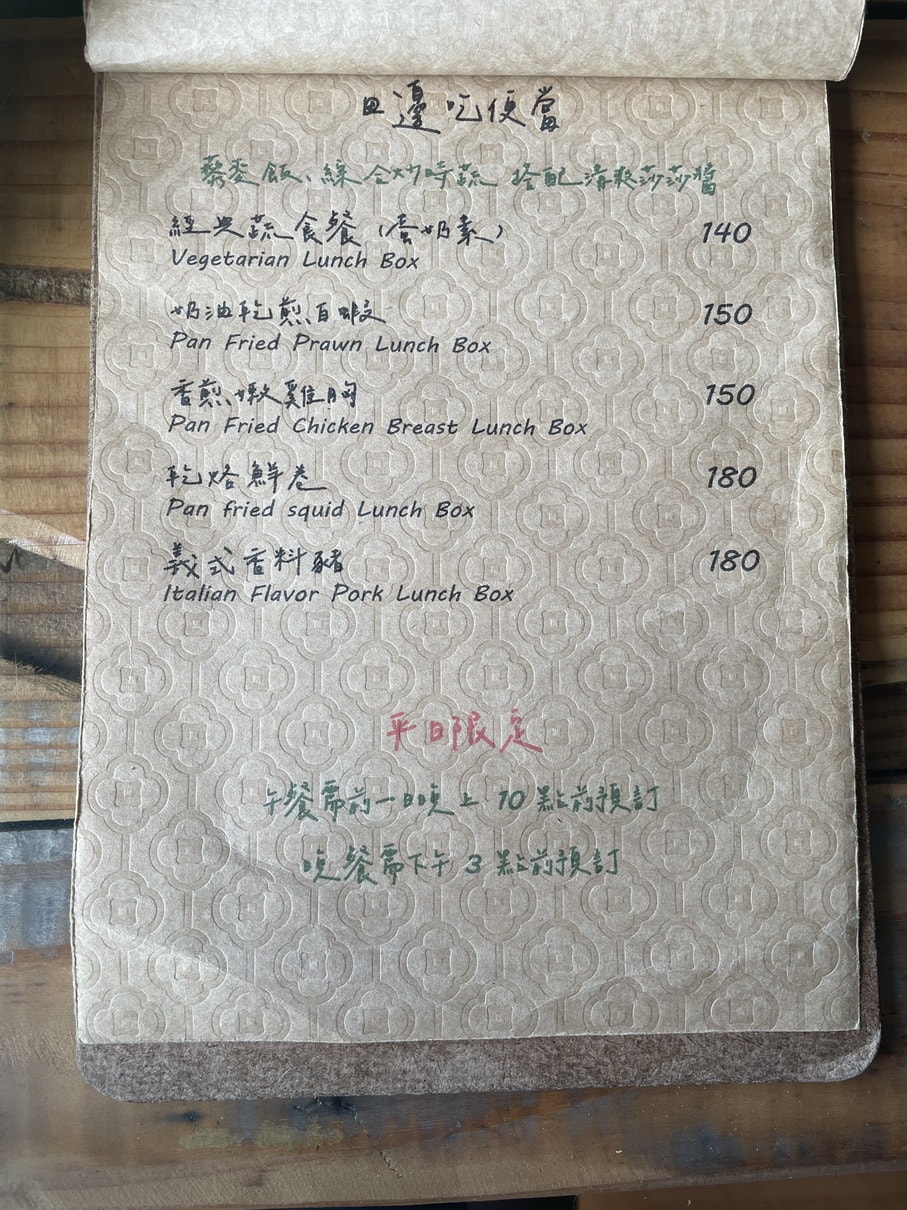 田邊吃便當
藜麥飯、綜合炒時蔬 搭配清爽莎莎醬
經典蔬食餐（蛋奶素） 140
Vegetarian Lunch Box
奶油乾煎白蝦 150
Pan Fried Prawn Lunch Box
香煎嫩雞胸 150
Pan Fried Chicken Breast Lunch Box
乾烙鮮卷 180
Pan fried squid Lunch Box
義式香料豬 180
Italian Flavor Pork Lunch Box
平日限定
午餐需前一日晚上 10 點前預訂
晚餐需下午 3 點前預訂